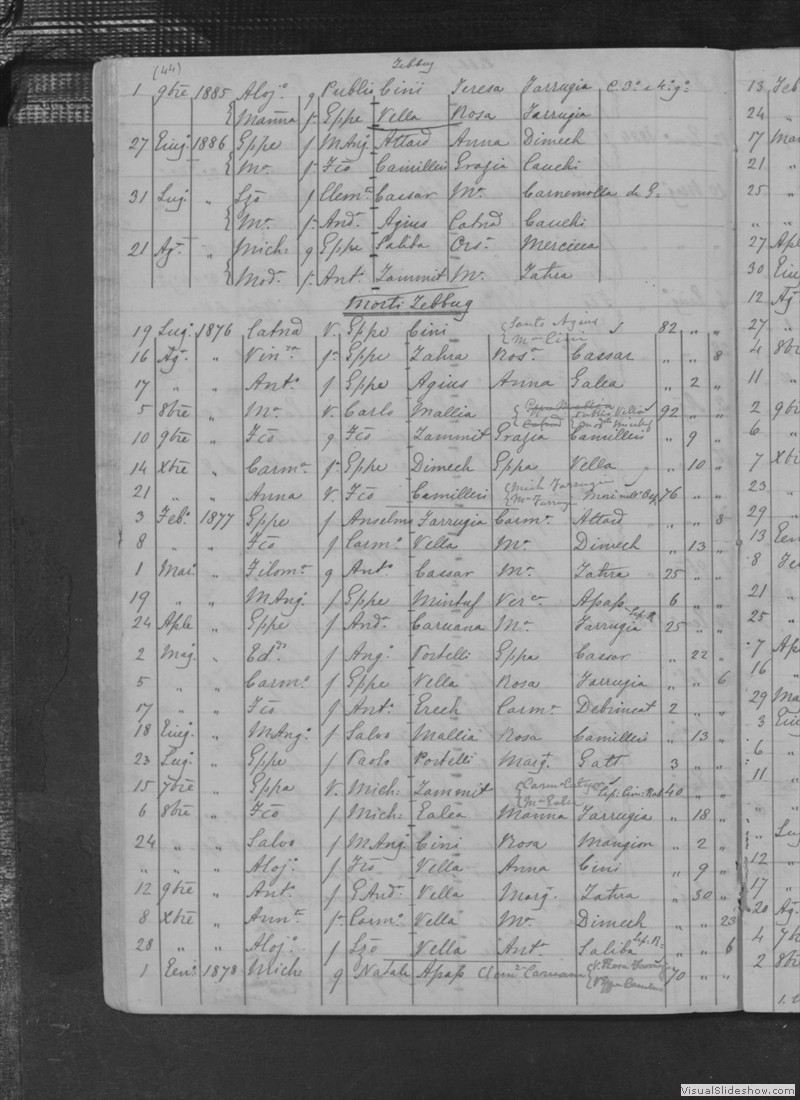 (44) Zebbug
1 9bre 1885 Aloj.o g Publio Cini Teresa Farrugia C. 3.o e 4.o g.o
Manna f. Eppe Vella Rosa Farrugia
27 Giug. 1886 Eppe f M Ang. Attard Anna Dimech
M.a f. Fco Camilleri Grazia Cauchi
31 Lug. „ Lzo f Clem.e Cassar M.a Carnemolla di G.
M.a f. And. Agius Catnd Cauchi
21 Ag. „ Mich: g Eppe Saliba Ors. Mercieca
Mod. f. Ant. Zammit M.a Zahra
Morti Zebbug
19 Lug. 1876 Catnd V. Eppe Cini 82 „ „
16 Ag. „ Vin.za f. Eppe Zahra Ros.a Cassar „ „ 8
17 „ „ Ant.o f Eppe Agius Anna Galea „ 2 „
5 8bre „ M.a V. Carlo Mallia 92 „ „
10 9bre „ Fco g Fco Zammit Grazia Camilleri „ 9 „
14 Xbre „ Carm.a f. Eppe Dimech Eppa Vella „ 10 „
21 „ „ Anna V. Fco Camilleri Mich Farrugia 76 „ „
3 Feb. 1877 Eppe f Anselmo Farrugia Carm.a Attard „ „ 8
8 „ „ Fco f Carm.o Vella M.a Dimech „ 13 „
1 Mar. „ Filom.a g Ant.o Cassar M.a Zahra 25 „ „
19 „ „ M Ang. f Eppe Mintuf Ver.ca Apap 6 „ „
24 Aple „ Eppe f And. Caruana M.a Farrugia 25 „ „
2 Mag. „ Ed.do f Ang. Portelli Eppa Cassar „ 22 „
5 „ „ Carm.o f Eppe Vella Rosa Farrugia „ „ 6
17 „ „ Fco f Ant.o Grech Carm.a Debrincat 2 „ „
18 Giug. „ M Ang. f Salvo Mallia Rosa Camilleri „ 13 „
23 Lug. „ Eppe f Paolo Portelli Marg. Gatt 3 „ „
15 7bre „ Eppa V. Mich: Zammit 40 „ „
6 8bre „ Fco f Mich: Galea Manna Farrugia „ 18 „
24 „ „ Salvo f M Ang. Cini Rosa Mangion „ 2 „
„ „ „ Aloj. f Fco Vella Anna Cini „ 9 „
12 9bre „ Ant. f G And. Vella Marg. Zahra „ 30 „
8 Xbre „ Ann.ta f. Carm.o Vella M.a Dimech „ „ 23
28 „ „ Aloj. f Lzo Vella Ant.a Saliba „ „ 6
1 Gen. 1878 Mich g Natale Apap Clem.a Caruana 70 „ „
13 Feb
24 „
17 Mar
21 „
25 „
„ „
27 Aple
30 Giu
12 Ag.
27 „
4 8bre
11 „
2 9bre
6 „
7 Xbre
23 „
29 „
13 Gen
8 Fe
21 „
25 „
7 Ap
16 „
29 Ma
3 Giu
6 „
11 „
„ „
„ Lug
12 „
17 „
20 Ag.
4 7b
2 8bre
VisualSlideshow.com